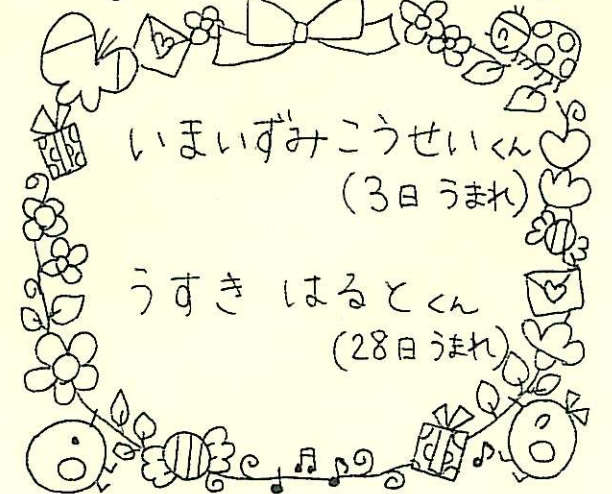 いまいずみこうせいくん
(3日 うまれ)
うすき はるとくん
(28日 うまれ)